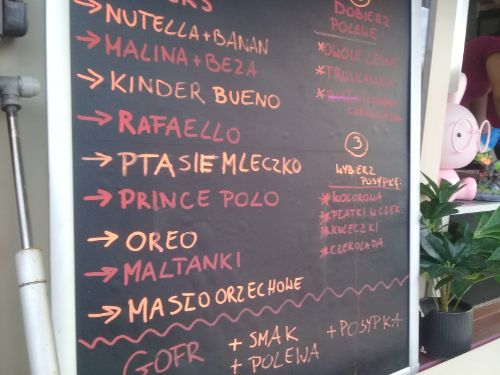 NUTELLA + BANAN
MALINA + BEZA
KINDER BUENO
RAFAELLO
PTASIE MLECZKO
PRINCE POLO
OREO
MALTANKI
MASŁO ORZECHOWE
DOBIERZ
POLEWĘ
* OWOCE LEŚNE
* TRUSKAWKA
3
WYBIERZ
POSYPKĘ
* KOLOROWA
* PŁATKI W CZEK.
* KULECZKI
* CZEKOLADA
GOFR + SMAK + POSYPKA
+ POLEWA